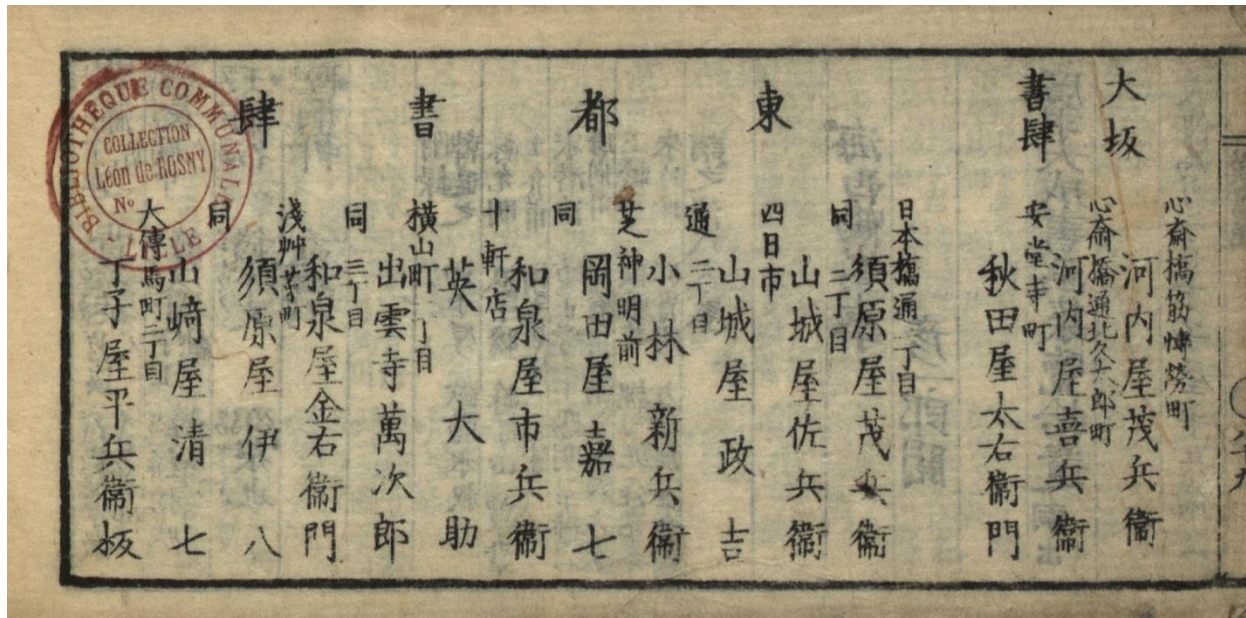 大坂
書肆
心斎橋筋博勞町
河内屋茂兵衞
心斎橋通北久太郎町
河内屋喜兵衞
安堂寺町
秋田屋太右衞門
東都書肆
日本橋通一丁目
須原屋茂兵衞
同二丁目
山城屋佐兵衞
四日市
山城屋政吉
通二丁目
小林新兵衞
芝神明前
岡田屋嘉七
同
和泉屋市兵衞
十軒店
英大助
横山町一丁目
出雲寺萬次郎
同三丁目
和泉屋金右衞門
淺艸茅町
須原屋伊八
同
山﨑屋清七
大傳馬町二丁目
丁子屋平兵衞板
BIBLIOTHEQUE COMMUNALE
LILLE
COLLECTION
Léon de ROSNY
No